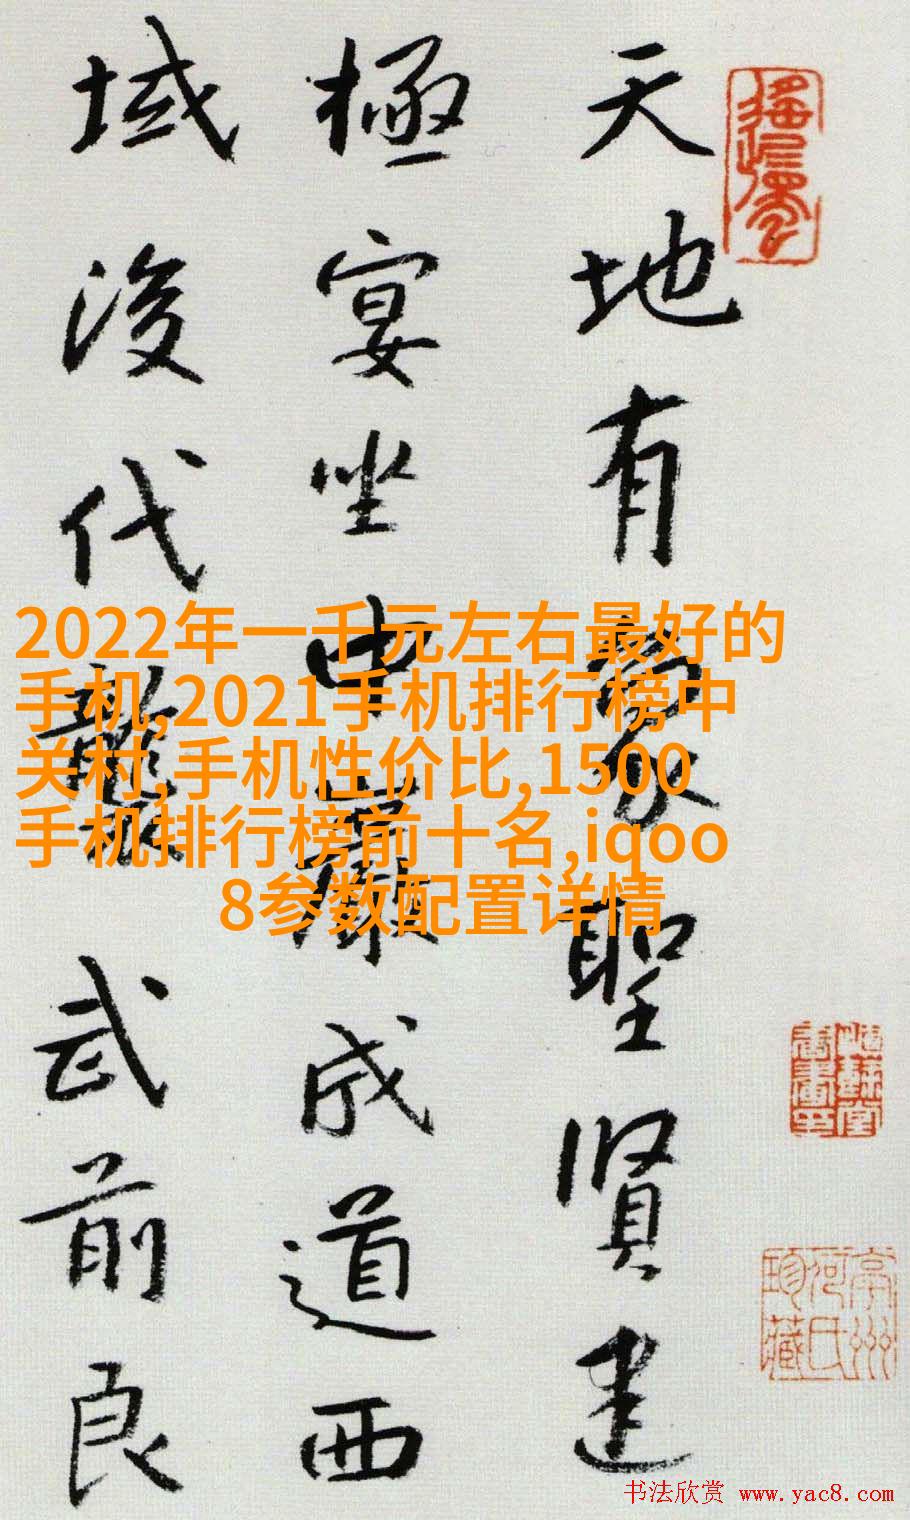 天地有象聖賢建
極宴坐中巖成道西
域後代襲武前良
2022年一千元左右最好的
手机,2021手机排行榜中
关村,手机性价比,1500
手机排行榜前十名,iqoo
8参数配置详情
书法欣赏 www.yac8.com